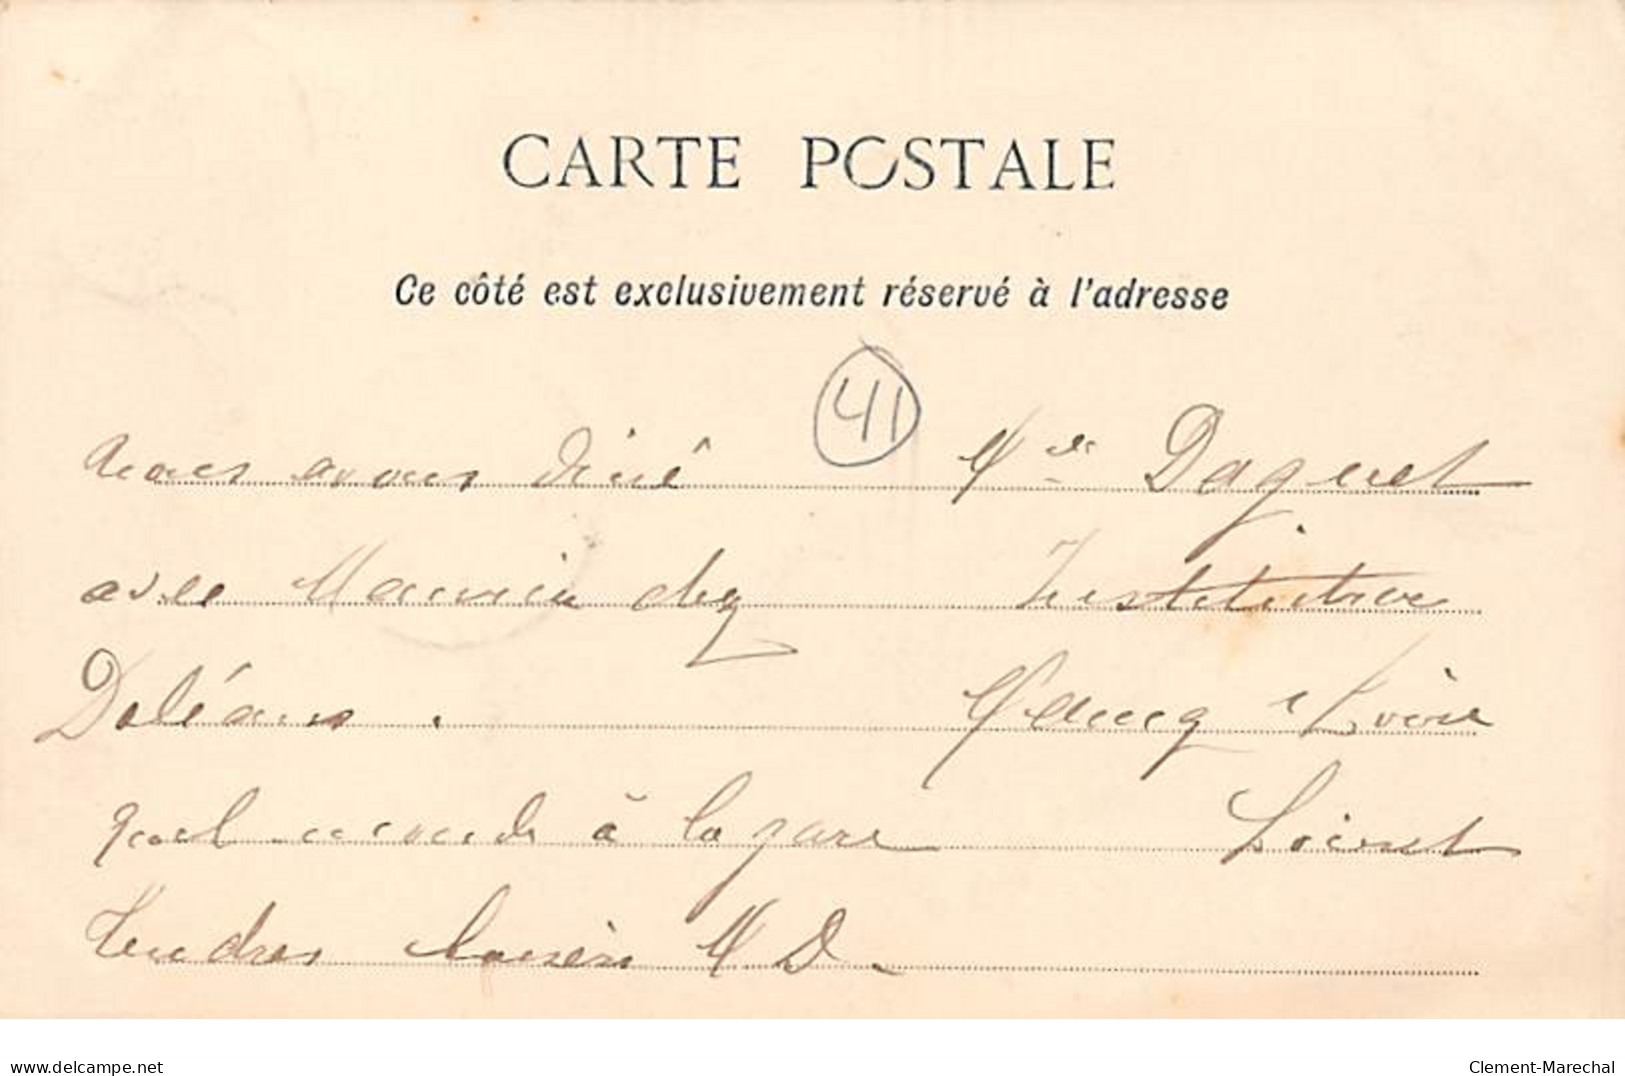 CARTE POSTALE
Ce côté est exclusivement réservé à l'adresse
41
nous avons diné
avec Maurice chez
Doléans.
quel monde à la gare
Tendres baisers M D.
Melle Daguet
Institutrice
Mareau
Loiret
delcampe.net
Clement-Marechal